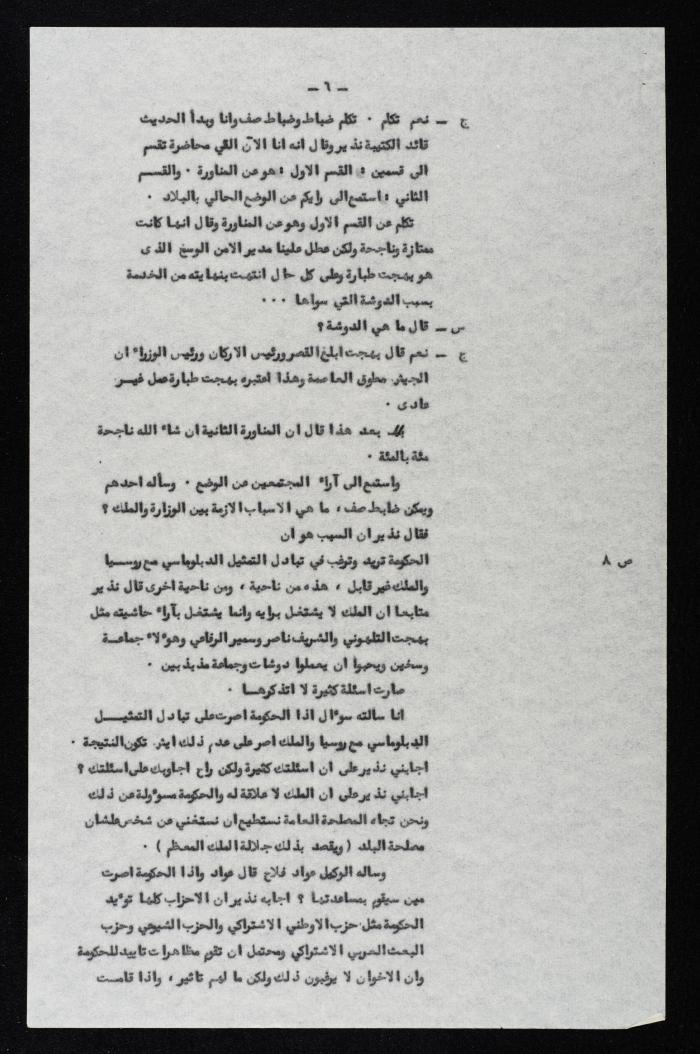 ـ ٦ ـ
ج ـ نعم تكلم ٠ تكلم ضباط وضباط صف وانا وبدأ الحديث
قائد الكتيبة نذير وقال انه انا الآن القي محاضرة تقسم
الى قسمين : القسم الاول : هو عن المناورة ٠ والقسم
الثاني : استمع الى رايكم عن الوضع الحالي بالبلاد ٠
تكلم عن القسم الاول وهو عن المناورة وقال انها كانت
ممتازة وناجحة ولكن عطل علينا مدير الامن الوسخ الذى
هو بهجت طبارة وعلى كل حال انتهت بنهايته من الخدمة
بسبب الدوشة التي سواها ٠٠٠
س ـ قال ما هي الدوشة ؟
ج ـ نعم قال بهجت ابلغ القصر ورئيس الاركان ورئيس الوزراء ان
الجيش مطوق العاصمة وهذا اعتبره بهجت طبارة عمل غير
عادى ٠
بعد هذا قال ان المناورة الثانية ان شاء الله ناجحة
مئة بالمئة ٠
واستمع الى آراء المجتمعين عن الوضع ٠ وسأله احدهم
ويمكن ضابط صف ، ما هي الاسباب الازمة بين الوزارة والملك ؟
فقال نذير ان السبب هو ان
الحكومة تريد وترغب في تبادل التمثيل الدبلوماسي مع روسيا
ص ٨
والملك غير قابل ، هذه من ناحية ، ومن ناحية اخرى قال نذير
متابعا ان الملك لا يشتغل برايه وانما يشتغل بآراء حاشيته مثل
بهجت التلهوني والشريف ناصر وسمير الرفاعي وهؤلاء جماعة
وسخين ويحبوا ان يعملوا دوشات وجماعة مذبذبين ٠
صارت اسئلة كثيرة لا اتذكرها ٠
انا سالته سؤال اذا الحكومة اصرت على تبادل التمثيل
الدبلوماسي مع روسيا والملك اصر على عدم ذلك ايش تكون النتيجة ٠
اجابني نذير على ان اسئلتك كثيرة ولكن راح اجاوبك على اسئلتك ؟
اجابني نذير على ان الملك لا علاقة له والحكومة مسؤولة عن ذلك
ونحن تجاه المصلحة العامة نستطيع ان نستغني عن شخص علشان
مصلحة البلد ( ويقصد بذلك جلالة الملك المعظم ) ٠
وساله الوكيل عواد فلاح قال عواد واذا الحكومة اصرت
مين سيقوم بمساعدتها ؟ اجابه نذير ان الاحزاب كلها تؤيد
الحكومة مثل حزب الاوطني الاشتراكي والحزب الشيوعي وحزب
البعث العربي الاشتراكي ومحتمل ان تقوم مظاهرات تاييد للحكومة
وان الاخوان لا يرغبون ذلك ولكن ما لهم تاثير ، واذا قامت